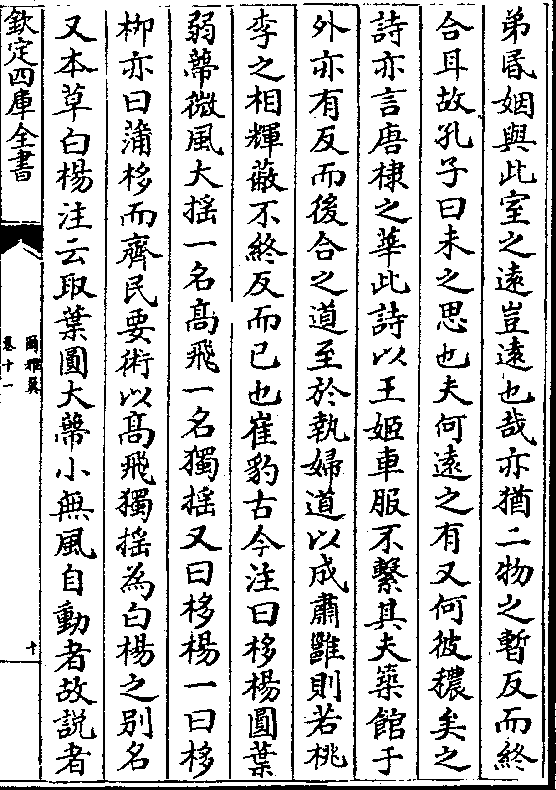 弟昬姻與此室之遠豈遠也哉亦猶二物之暫反而終
合耳故孔子曰未之思也夫何遠之有又何彼穠矣之
詩亦言唐棣之華此詩以王姬車服不繫其夫築館于
外亦有反而後合之道至於執婦道以成肅雝則若桃
李之相輝蔽不終反而已也崔豹古今注曰栘楊圓葉
弱蔕微風大揺一名髙飛一名獨揺又曰栘楊一曰栘
栁亦曰蒲栘而齊民要術以髙飛獨揺為白楊之别名
又本草白楊注云取葉圓大蔕小無風自動者故説者
欽定四庫全書
爾雅翼
卷十一
十